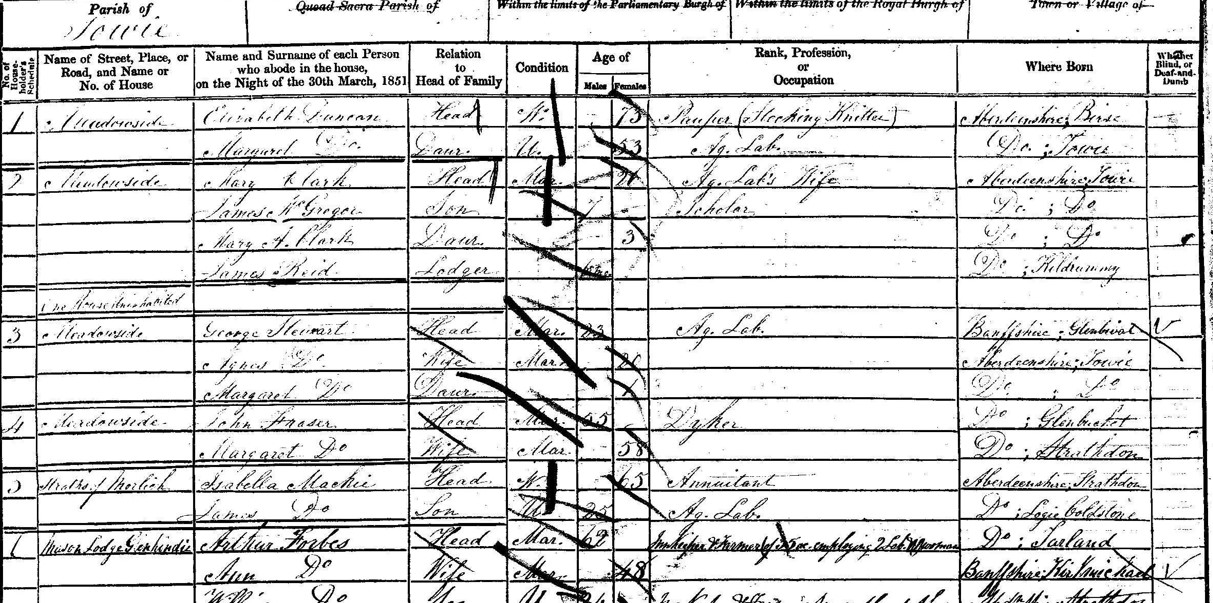 Parish of Quoad Sacra Parish of Within the limits of the Parliamentary Burgh of Within the limits of the Royal Burgh of Town or Village of
Towie
No. of House-holder's Schedule Name of Street, Place, or Road, and Name or No. of House Name and Surname of each Person who abode in the house, on the Night of the 30th March, 1851 Relation to Head of Family Condition Age of Males Females Rank, Profession, or Occupation Where Born Whether Blind, or Deaf-and-Dumb
1 Meadowside Elizabeth Duncan Head W. 73 Pauper (Stocking Knitter) Aberdeenshire; Birse
Margaret Do Daur. U. 53 Ag. Lab. Do ; Towie
2 Meadowside Mary Clark Head Mar. Ag. Lab's Wife Aberdeenshire; Towie
James McGregor Son 7 Scholar Do ; Do
Mary A. Clark Daur. 3 Do ; Do
James Reid Lodger Do ; Kildrummy
One House Uninhabited
3 Meadowside George Stewart Head Mar. 23 Ag. Lab. Banffshire; Glenlivat
Agnes Do Wife Mar. Aberdeenshire; Towie
Margaret Do Daur. 1 Do ; Do
4 Meadowside John Fraser Head Mar. 55 Dyker Do ; Glenbucket
Margaret Do Wife Mar. 58 Do ; Strathdon
5 of Morlich Isabella Mackie Head W. 65 Annuitant Aberdeenshire; Strathdon
James Do Son U. 25 Ag. Lab. Do ; Logie Coldstone
Mason Lodge Glenkindie Arthur Forbes Head Mar. 69 Innkeeper & Farmer of 35 ac. employing 2 Lab. Do ; Tarland
Ann Do Wife Mar. 48 Banffshire; Kirkmichael
Do U.